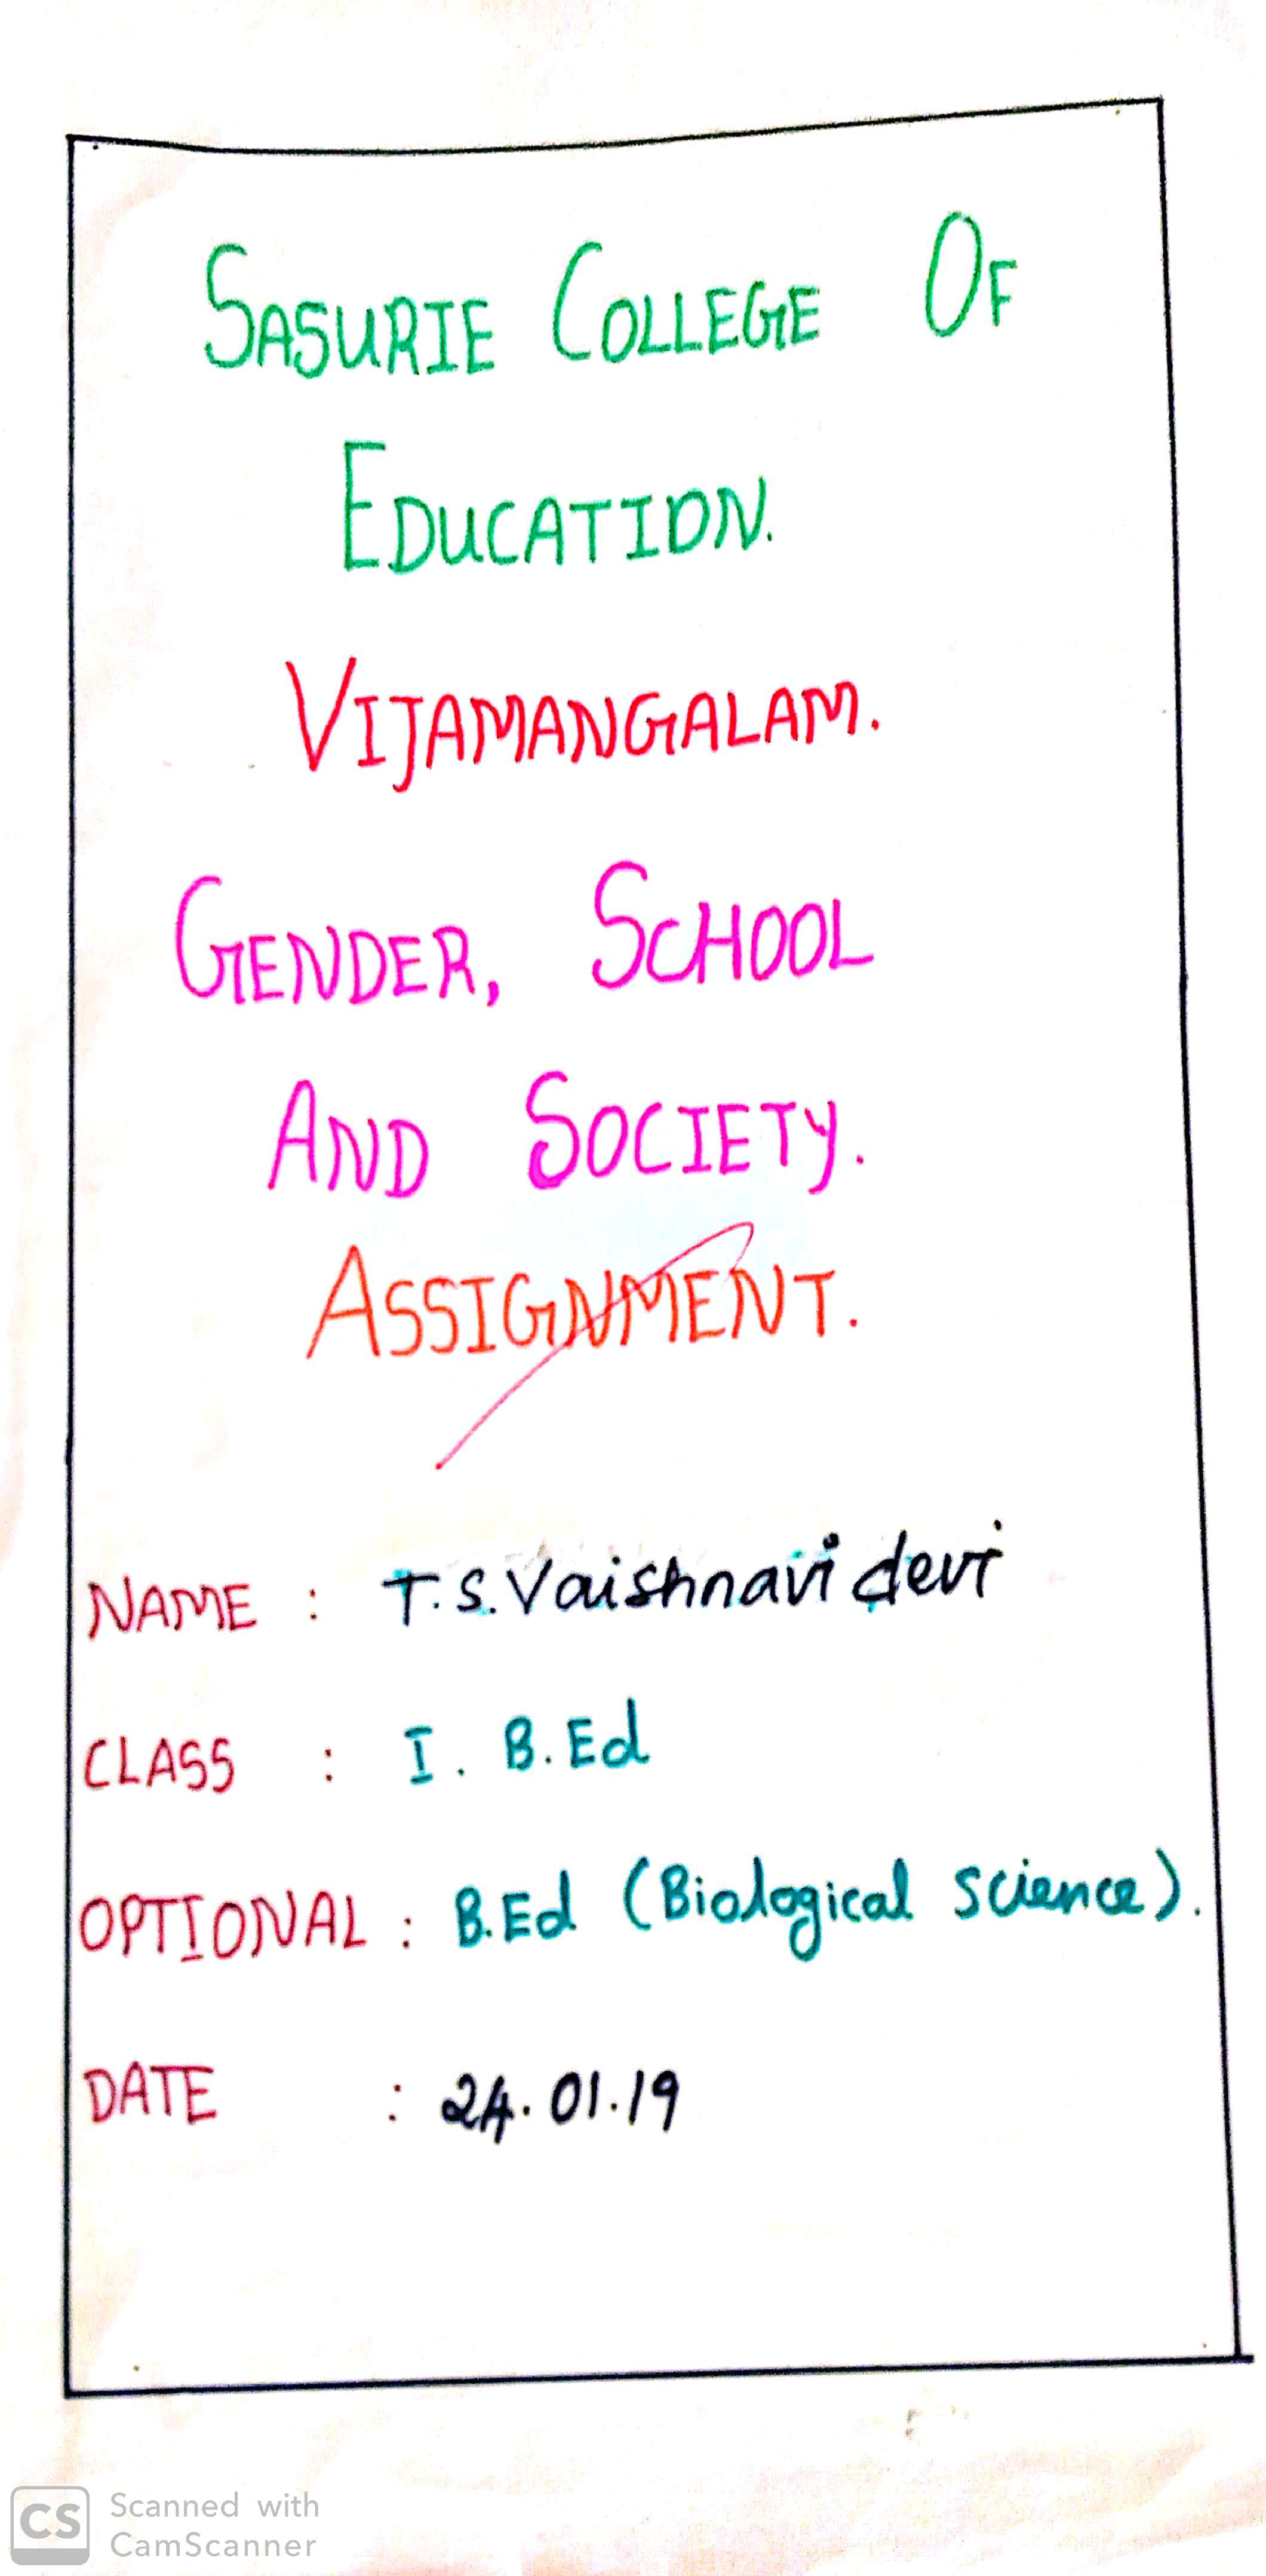 SASURIE COLLEGE OF
EDUCATION.
VIJAMANGALAM.
GENDER, SCHOOL
AND SOCIETY.
ASSIGNMENT.
NAME : T.S.Vaishnavi devi
CLASS : I. B.Ed
OPTIONAL : B.Ed (Biological Science).
DATE : 24.01.19
CS Scanned with
CamScanner